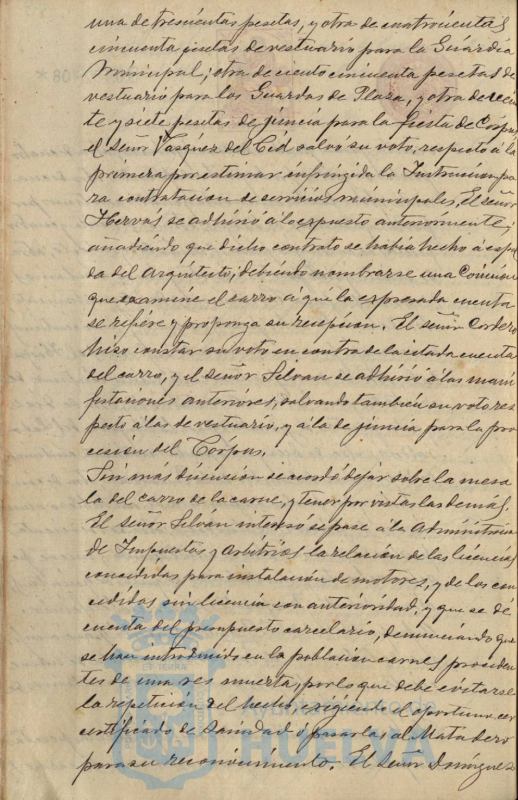 una de trescientas pesetas, y otra de cuatrocientas
cincuenta pesetas de vestuario para la Guardia
Municipal; otra de ciento cincuenta pesetas de
vestuario para los Guardas de Plaza, y otra de vein
te y siete pesetas de juncia para la fiesta de Córpus,
el señor Vasquez del Cid salvó su voto, respecto á la
primera por estimar infringida la Instrucción pa
ra contratación de servicios municipales. El señor
Hervás se adhirió á lo expuesto anteriormente,
añadiendo que dicho contrato se había hecho á espal
da del Arquitecto, debiendo nombrarse una Comisión
que examine el carro á que la expresada cuenta
se refiere y proponga su recepcion. El señor Cordero
hizo constar su voto en contra de la citada cuenta
del carro, y el señor Silván se adhirió á las mani
festaciones anteriores, salvando también su voto res
pecto á las de vestuario, y á la de juncia para la pro
cesión del Córpus.
Sin más discusión se acordó dejar sobre la mesa
la del carro de la carne, y tener por vistas las demás.
El señor Silván interesó se pase á la Administración
de Impuestos y Arbitrios la relación de las licencias
concedidas para instalación de motores, y de los con
cedidos sin licencia con anterioridad, y que se dé
cuenta del presupuesto carcelario, denunciando que
se han introducido en la poblacion carnes proceden
tes de una res muerta, por lo que debe evitarse
la repetición del hecho, exigiendo el oportuno cer
certificado de Sanidad ó pasarlas al Matadero
para su reconocimiento. El señor Dominguez
HUELVA